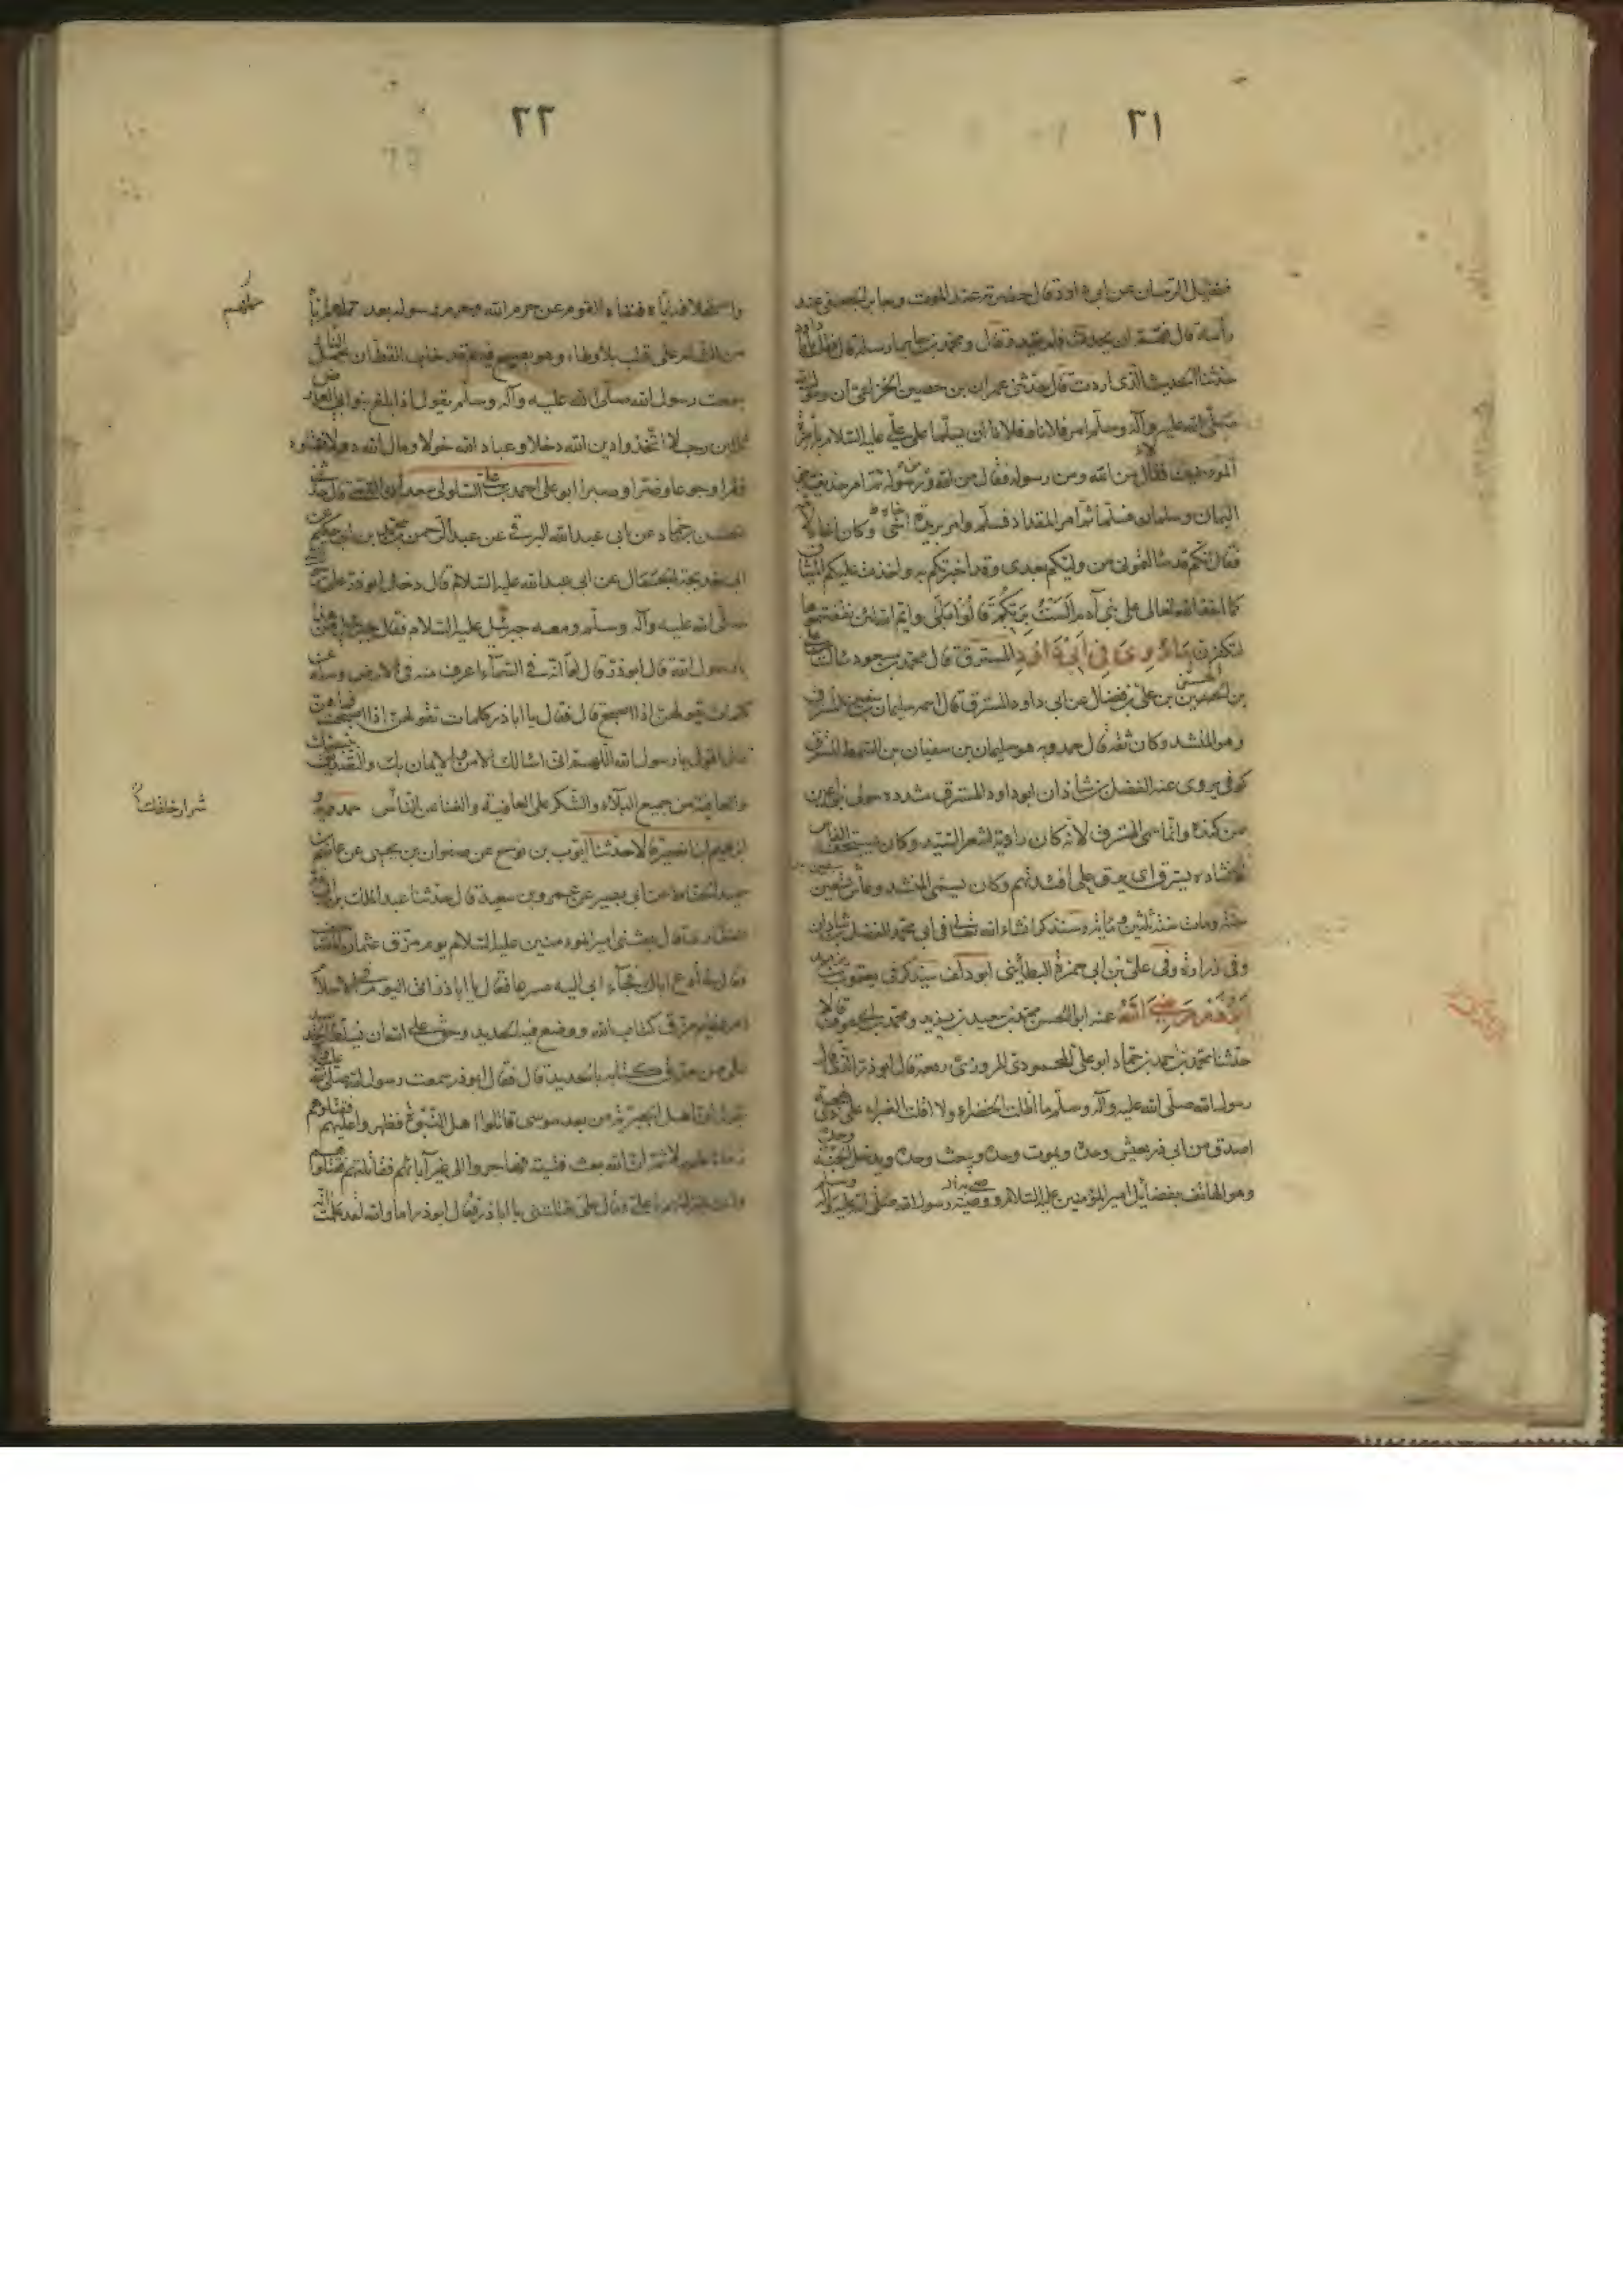 ٣١
فضيل الرسان عن ابى داود قال حضرته عند الموت وجابر الجعفى عند
رأسه قال فهم ان يحدث فلم يقدر قال ومحمد بن جابر ارسله قال فقلت يا ابا داود
حدثنا الحديث الذى اردت قال حدثنى عمران بن حصين الخزاعى ان رسول الله
صلى الله عليه وآله وسلم امر فلانا وفلانا ان يسلما على على عليه السلام بامرة
المؤمنين فقالا من الله ومن رسوله فقال من الله ومن رسوله ثم امر حذيفة بن
اليمان وسلمان فسلما ثم امر المقداد فسلم وامر بريدة اخى وكان اخاه لامه
فقال انكم قد سألتمونى من وليكم بعدى وقد اخبرتكم به واخذت عليكم الميثاق
كما اخذ الله تعالى على بنى آدم الست بربكم قالوا بلى وايم الله لئن نقضتموها
لتكفرن ما روى فى ابى داود المسترق قال محمد بن مسعود سالت
بن الحسن بن على بن فضال عن ابى داود المسترق قال اسمه سليمان بن سفين المسترق
وهو المنشد وكان ثقة قال حمدويه هو سليمان بن سفيان بن السمط المسترق
كوفى يروى عنه الفضل بن شاذان ابو داود المسترق مشددة مولى بنى اعين
من كندة وانما سمى المسترق لانه كان راوية لشعر السيد وكان يستخفه الناس
لانشاده يسترق اى يرق على افئدتهم وكان يسمى المنشد وعاش سبعين
سنة ومات سنة ثلثين ومائة وسنذكر انشاء الله تعالى فى ابى محمد الفضل بن شاذان
وفى زرارة وفى على بن ابى حمزة البطائنى ابو دلف سيذكر فى يعقوب بن يزيد
ابو ذر رضى الله عنه ابو الحسن محمد بن سعيد بن يزيد ومحمد بن ابى عوف قالا
حدثنا محمد بن احمد بن حماد ابو على المحمودى المروزى رفعه قال ابو ذر الذى قال
رسول الله صلى الله عليه وآله وسلم ما اظلت الخضراء ولا اقلت الغبراء على ذى لهجة
اصدق من ابى ذر يعيش وحده ويموت وحده ويبعث وحده ويدخل الجنة وحده
وهو الهاتف بفضائل امير المؤمنين عليه السلام ووصية رسول الله صلى الله عليه وآله وسلم
٣٢
واستخلافه اياه فنفاه القوم عن حرم الله وحرم رسوله بعد حملهم اياه
من الشام على قتب بلا وطاء وهو يصيح فيهم قد خاب القطار يحمل النار
سمعت رسول الله صلى الله عليه وآله وسلم يقول اذا بلغ بنو ابى العاص
ثلثين رجلا اتخذوا دين الله دخلا وعباد الله خولا ومال الله دولا فقتلوه
فقرا وجوعا وضرا وصبرا ابو على احمد بن على السلولى حدثنى
الحسن بن حماد عن ابى عبد الله البرقى عن عبد الرحمن بن محمد بن ابى حكيم عن
ابى خديجة الجمال عن ابى عبد الله عليه السلام قال دخل ابو ذر على رسول الله
صلى الله عليه وآله وسلم ومعه جبرئيل عليه السلام فقال جبرئيل من هذا
يا رسول الله قال ابو ذر قال اما انه فى السماء اعرف منه فى الارض وسله عن
كلمات يقولهن اذا اصبح قال فقال يا ابا ذر كلمات تقولهن اذا اصبحت فما هن
قال اقول يا رسول الله اللهم انى اسالك الامن والايمان بك والتصديق بنبيك
والعافية من جميع البلاء والشكر على العافية والغنا عن الناس حمدويه و
ابرهيم ابنا نصير قالا حدثنا ايوب بن نوح عن صفوان بن يحيى عن عاصم بن
حميد الحناط عن ابى بصير عن عمرو بن سعيد قال حدثنا عبد الملك بن ابى ذر
الغفارى قال بعثنى امير المؤمنين عليه السلام يوم مزق عثمان المصاحف
فقال ادع اباك فجاء ابى اليه مسرعا فقال يا ابا ذر اتى اليوم فى الاسلام
امر عظيم مزق كتاب الله ووضع فيه الحديد وحق على الله ان يسلط الحديد
على من مزق كتابه بالحديد قال فقال ابو ذر سمعت رسول الله صلى الله عليه وآله
يقول ان اهل الجبرية من بعد موسى قاتلوا اهل النبوة فظهروا عليهم فقتلوهم
زمانا طويلا ثم ان الله بعث فتية فهاجروا الى غير آبائهم فقاتلهم فقتلوهم
وانت بمنزلتهم يا على فقال على قتلتنى يا ابا ذر فقال ابو ذر اما والله لقد علمت انه
شرار خلقك